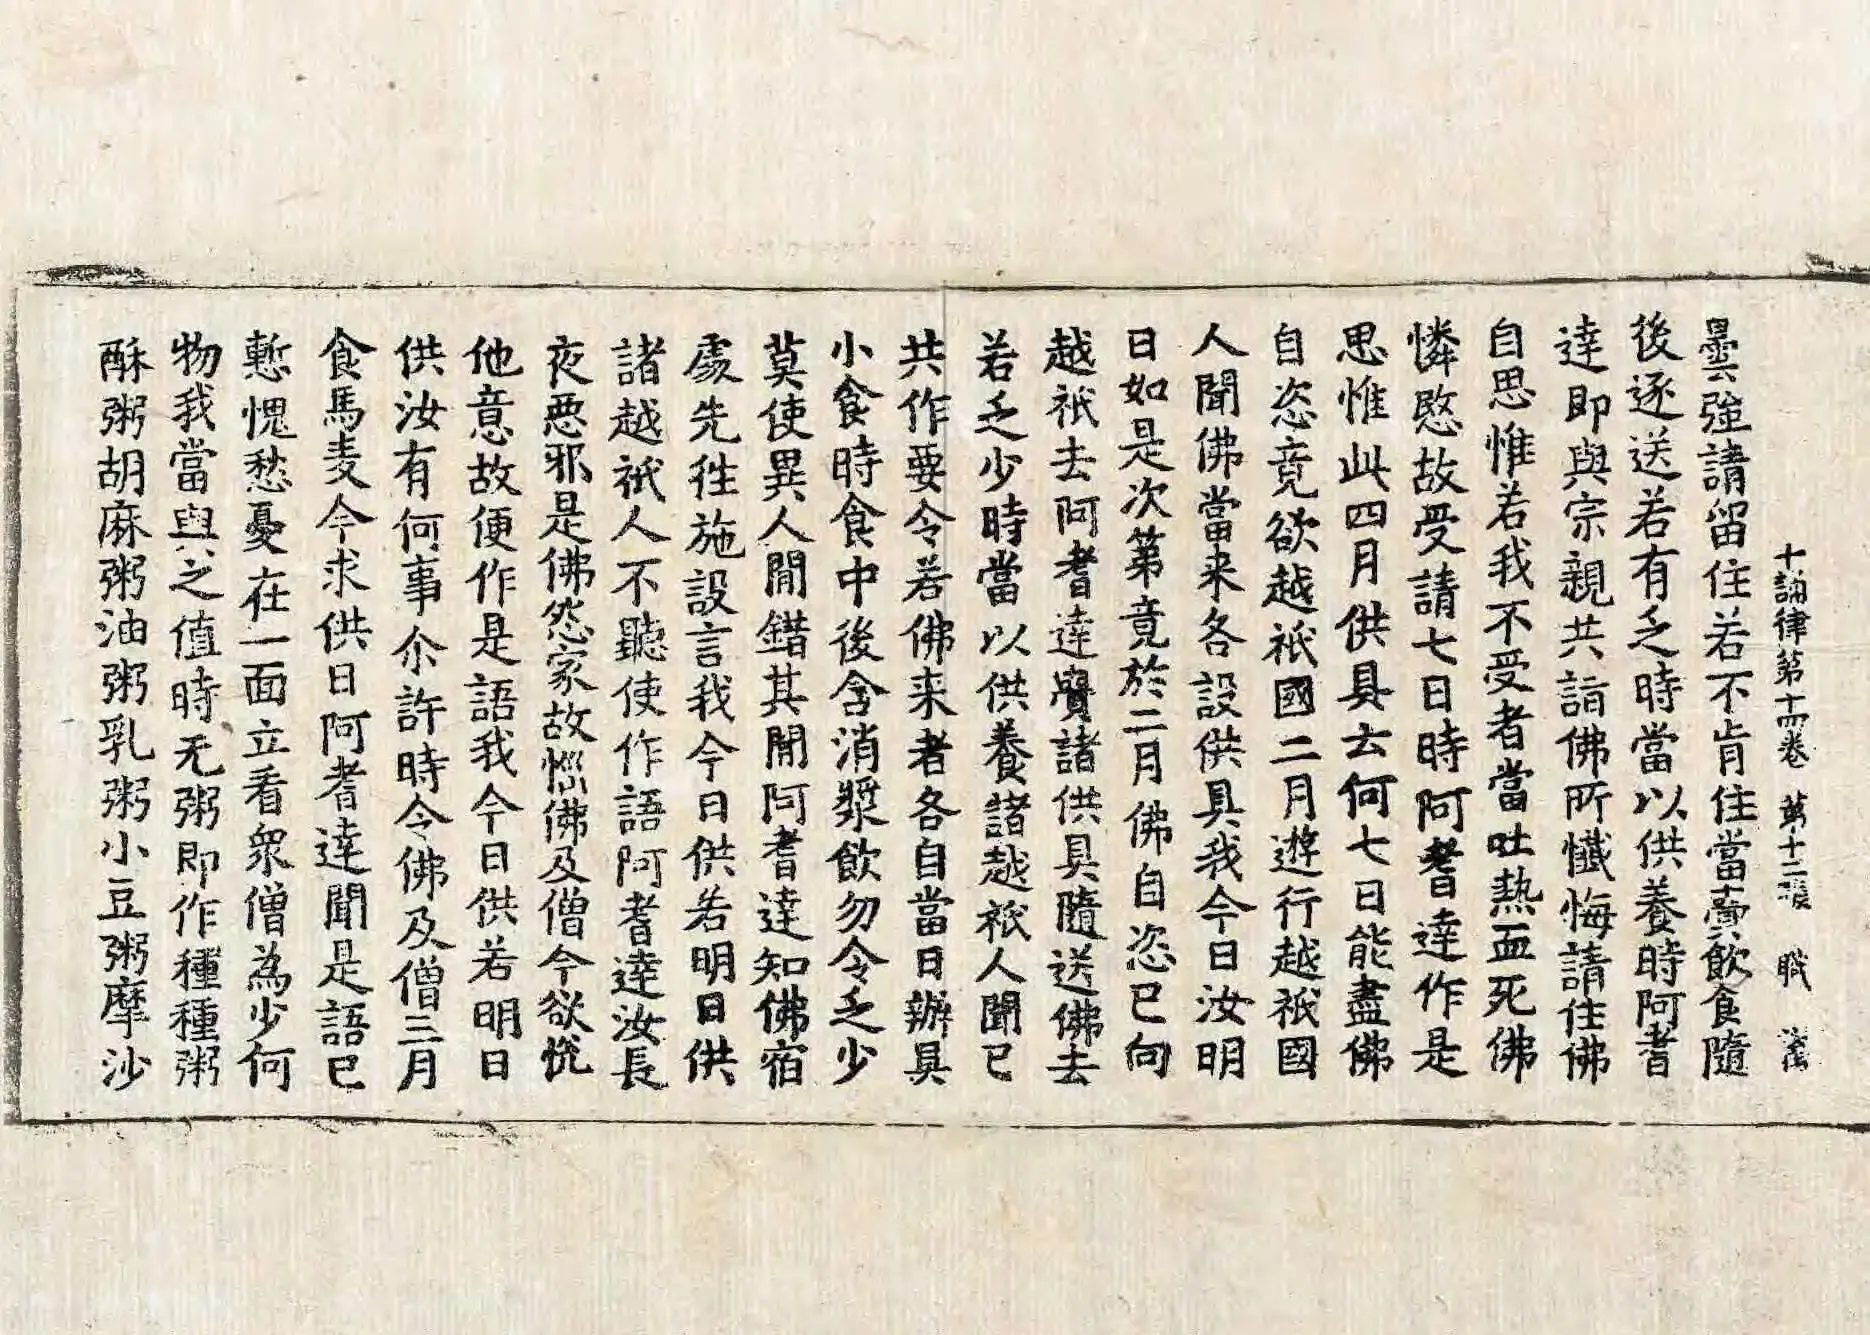 十誦律第十四卷 第十二張 職
曇強請留住若不肯住當賣飲食隨
後逐送若有乏時當以供養時阿耆
達即與宗親共詣佛所懺悔請住佛
自思惟若我不受者當吐熱血死佛
憐愍故受請七日時阿耆達作是
思惟此四月供具云何七日能盡佛
自恣竟欲越祇國二月遊行越祇國
人聞佛當来各設供具我今日汝明
日如是次第竟於二月佛自恣已向
越祇去阿耆達賷諸供具隨送佛去
若乏少時當以供養諸越祇人聞已
共作要令若佛来者各自當日辦具
小食時食中後含消漿飲勿令乏少
莫使異人閒錯其閒阿耆達知佛宿
處先往施設言我今日供若明日供
諸越祇人不聽使作語阿耆達汝長
夜惡邪是佛怨家故惱佛及僧今欲悅
他意故便作是語我今日供若明日
供汝有何事尒許時令佛及僧三月
食馬麦今求供日阿耆達聞是語已
慙愧愁憂在一面立看衆僧為少何
物我當與之值時无粥即作種種粥
酥粥胡麻粥油粥乳粥小豆粥摩沙